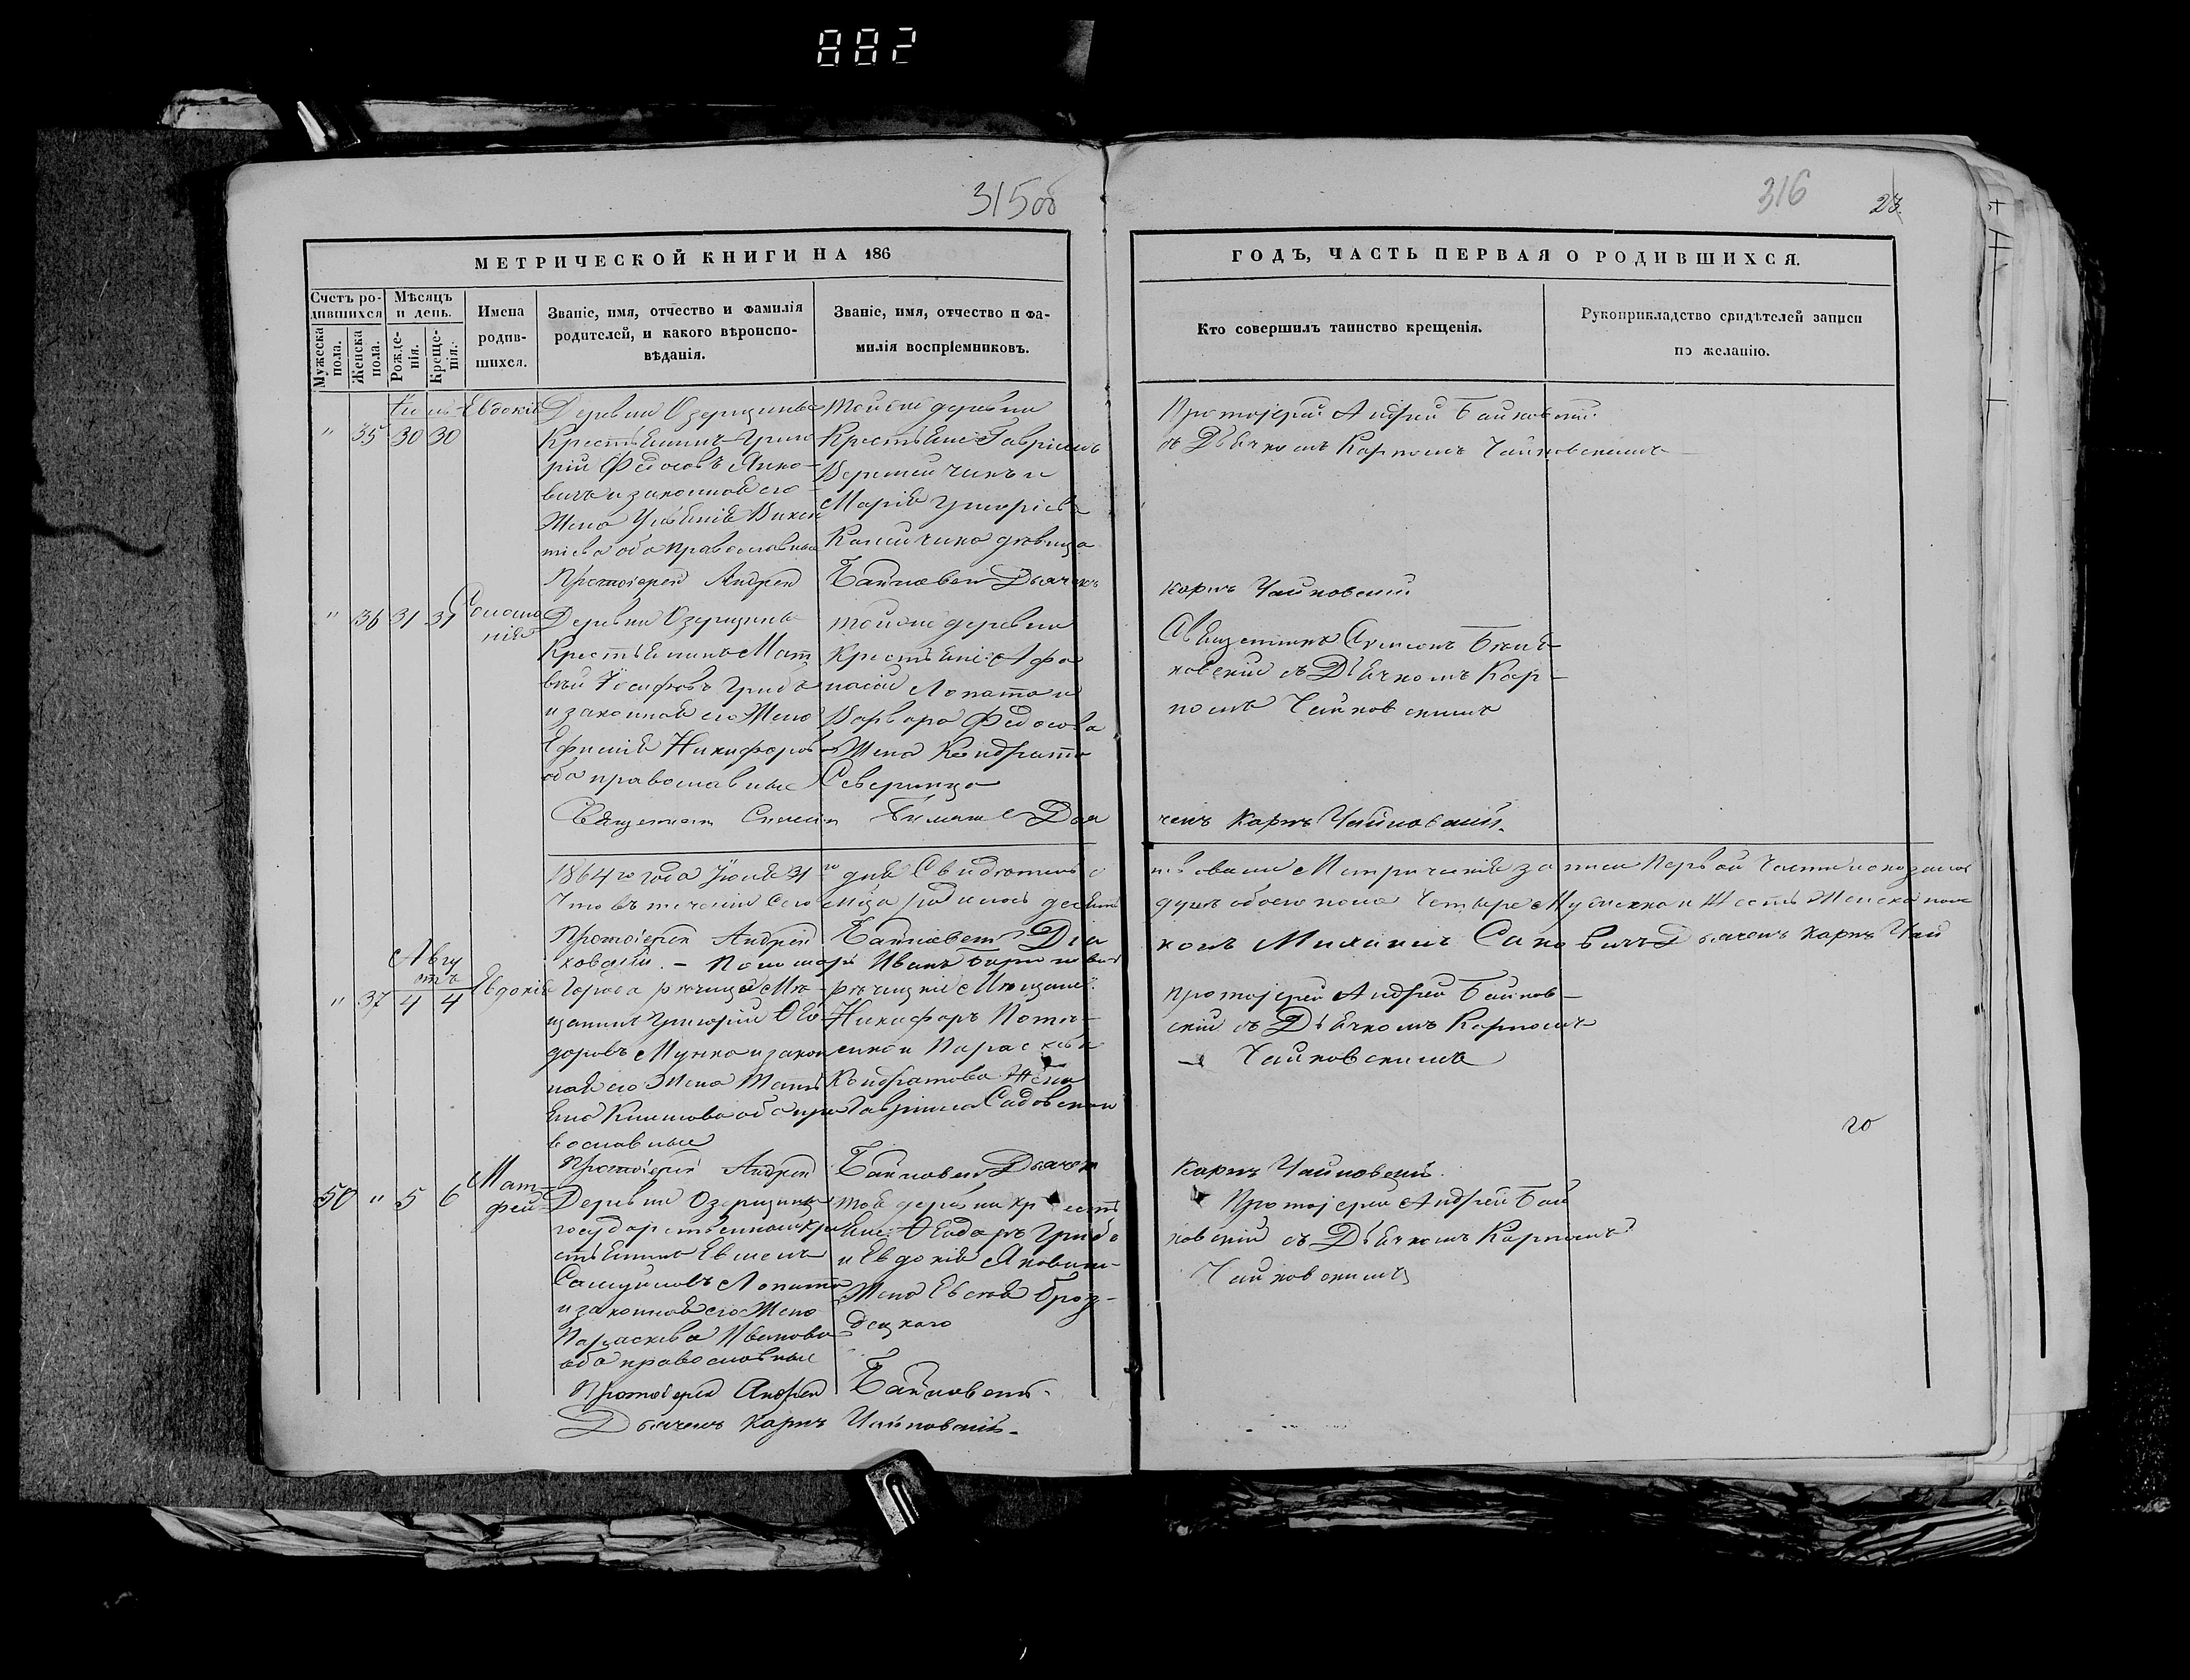 882
315об
316
23.
МЕТРИЧЕСКОЙ КНИГИ НА 186
ГОДЪ, ЧАСТЬ ПЕРВАЯ О РОДИВШИХСЯ.
Счетъ ро-
дившихся
Мужеска
пола.
Женска
пола.
Мѣсяцъ
и день.
Рожде-
нія.
Креще-
нія.
Имена
родив-
шихся.
Званіе, имя, отчество и фамилія
родителей, и какого вѣроиспо-
вѣданія.
Званіе, имя, отчество и фа-
милія воспріемниковъ.
Кто совершилъ таинство крещенія.
Рукоприкладство свидѣтелей записи
по желанію.
" 35 30 30
Евдокія
Деревни Озерщины
Крестьянинъ Григо
рій Федосовъ Янко-
вичъ и законная его
Жена Викен
тіева оба православные
тойже деревни
Крестьяне Гавріилъ
и
Марія Григоріева
дѣвица
Протоіерей Андрей Байковскій
съ Дьячкомъ Карпомъ Чайковскимъ
Протоіерей Андрей Байковскій Дьячекъ
Карпъ Чайковскій
" 36 31 31
Соломо
нія
Деревни Озерщины
Крестьянинъ Мат
вѣй Іосифовъ Гридь
и законная его Жена
Никифорова
оба православные
тойже деревни
Крестьяне Афа
насій Лопата и
Варвара Федосова
Жена Кондрата
Северинца
Священникъ Симеонъ
съ Дьячкомъ Кар-
помъ Чайковскимъ
Священникъ Симеонъ Дья
чекъ Карпъ Чайковскій.
1864го года Іюля 31го дня Свидѣтельс
твовали Метрическія записи Первой Части и оказалось
Что въ теченіи сего мѣсяца родилось десять
душъ обоего пола Четыре Мужеска и Шесть Женска пола
Протоіерей Андрей Байковскій Диа
конъ Михаилъ Саковичъ Дьячекъ Карпъ Чай
ковскій. – Пономарь Иванъ
Авгу
стъ
" 37 4 4
Евдокія
Города Рѣчицы Мѣ-
щанинъ Григорій Фео-
доровъ Мунка и закон
ная его Жена Тать
яна Климова оба пра
вославные
Рѣчицкіе Мѣщане:
Никифоръ
и Параскева
Кондратова Жена
Гавріила Садовскаго
Протоіерей Андрей Байков-
скій съ Дьячкомъ Карпомъ
Чайковскимъ
20
Протоіерей Андрей Байковскій Дьячекъ
Карпъ Чайковскій.
50 " 5 6
Мат-
фей
Деревни Озерщины
государственный кре
стьянинъ
Самуиловъ Лопата
и законная его Жена
Параскева Иванова
оба православные
той деревни крестья
не: Феодоръ Гридь
и Евдокія Яковлева
Жена Евсея Брез-
децкаго
Протоіерей Андрей Бай
ковскій съ Дьячкомъ Карпомъ
Чайковскимъ
Протоіерей Андрей Байковскій.
Дьячекъ Карпъ Чайковскій.